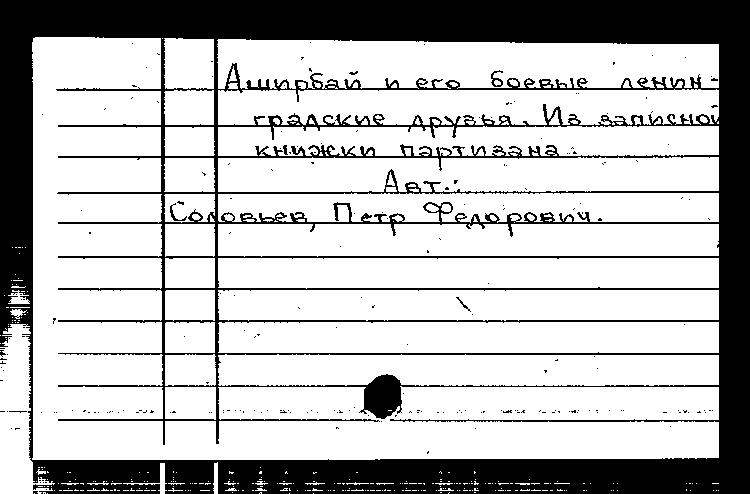 Аширбай и его боевые ленин-
градские друзья. Из записной
книжки партизана.
Авт.:
Соловьев, Петр Федорович.